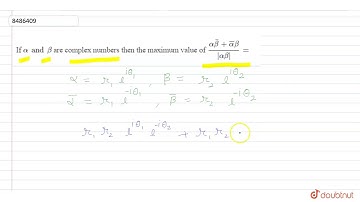 8486409
If α and β are complex numbers then the maximum value of \frac{α\bar{β}+\bar{α}β}{|αβ|} =
α = r₁ e^{iθ₁} , β = r₂ e^{iθ₂}
\bar{α} = r₁ e^{-iθ₁} , \bar{β} = r₂ e^{-iθ₂}
r₁ r₂ e^{iθ₁} e^{-iθ₂} + r₁ r₂
doubtnut